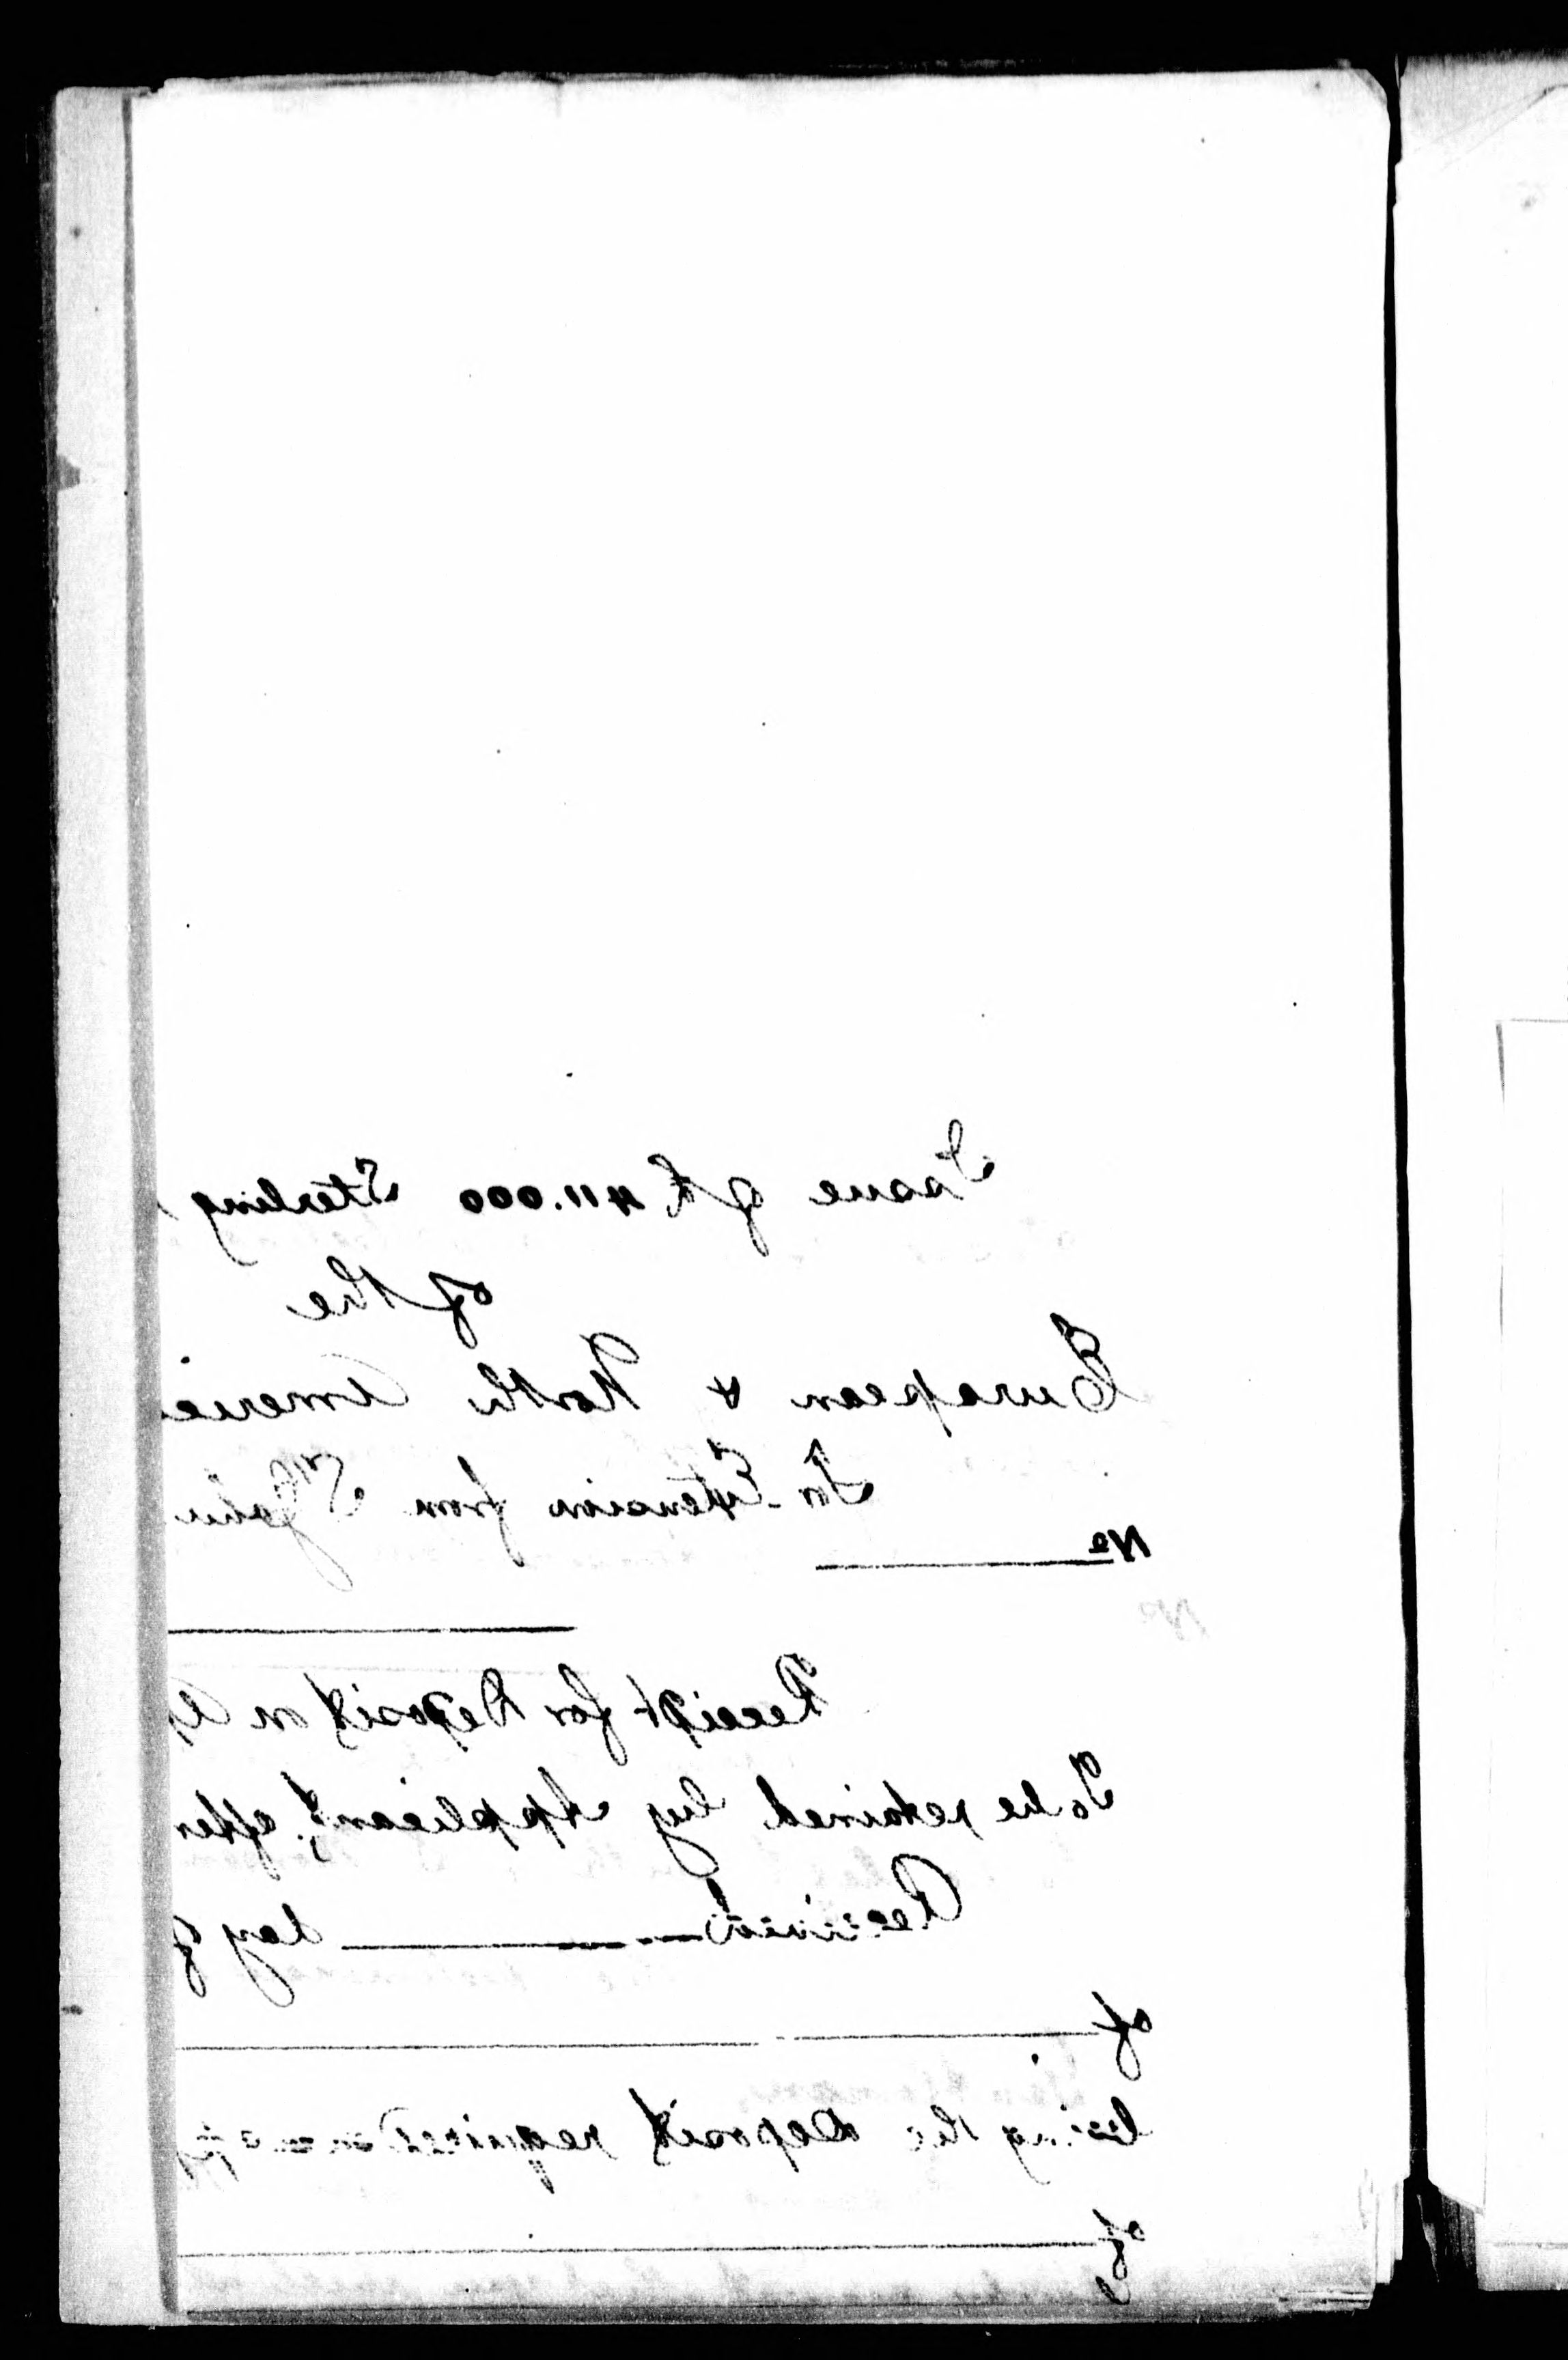 Issue of £ 411.000 Sterling
of the
European & North America
For Extension from St John
No
No
Receipt for Deposit on A
To be retained by Applicant after
Received day of
of
being the deposit required on
of